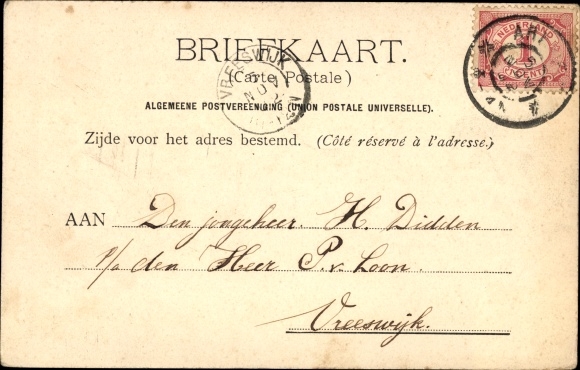 BRIEFKAART.
(Carte Postale)
ALGEMEENE POSTVEREENIGING (UNION POSTALE UNIVERSELLE).
Zijde voor het adres bestemd. (Côté réservé à l'adresse.)
AAN Den jongeheer. H. Didden
p/a den Heer P. v. Loon.
Vreeswijk.
VREESWIJK
5 NOV
NEDERLAND
1
CENT